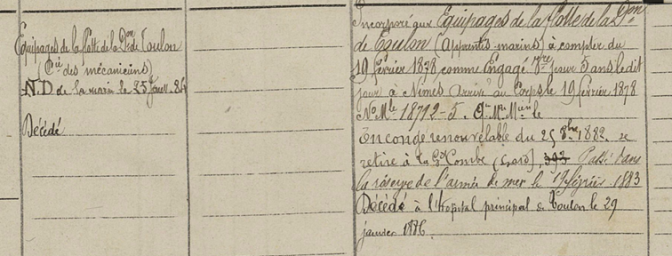 Equipages de la flotte de la Don de Toulon
(Cie des mécaniciens)
N.D de la marin le 25 Janv. 84
Décédé
Incorporé aux Equipages de la flotte de la Don
de Toulon (apprentis-marins) à compter du
19 février 1878 comme Engagé Vre pour 5 ans ledit
jour à Nimes Arrivé au Corps le 19 février 1878
No Mle 18712-5.
En congé renouvelable du 25 8bre 1882 se
retire à la Gd Combe (Gard), Passé dans
la réserve de l'armée de mer le 19 février 1883
Décédé à l'hopital principal de Toulon le 29
janvier 1886.